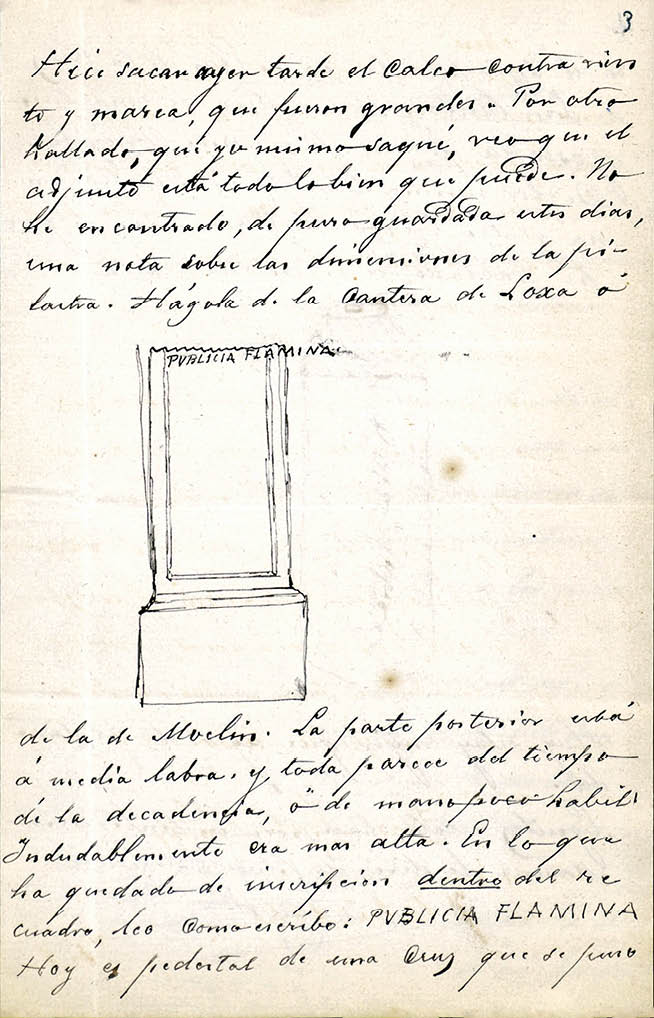 3
Hice sacar ayer tarde el calco contra vien
to y marea, que fueron grandes. Por otro
hallado, que yo mismo saqué, veo que el
adjunto está todo lo bien que puede. No
he encontrado, de puro guardada estos dias,
una nota sobre las dimensiones de la pi-
lastra. Hágola de la Cantera de Loxa ó
PVBLICIA FLAMINA
de la de Moclin. La parte posterior está
á media labra, y toda parece del tiempo
de la decadencia, ó de mano poco habil.
Indudablemente era mas alta. En lo que
ha quedado de inscripcion dentro del re
cuadro, leo como escribo: PVBLICIA FLAMINA
Hoy es pedestal de una Cruz que se puso